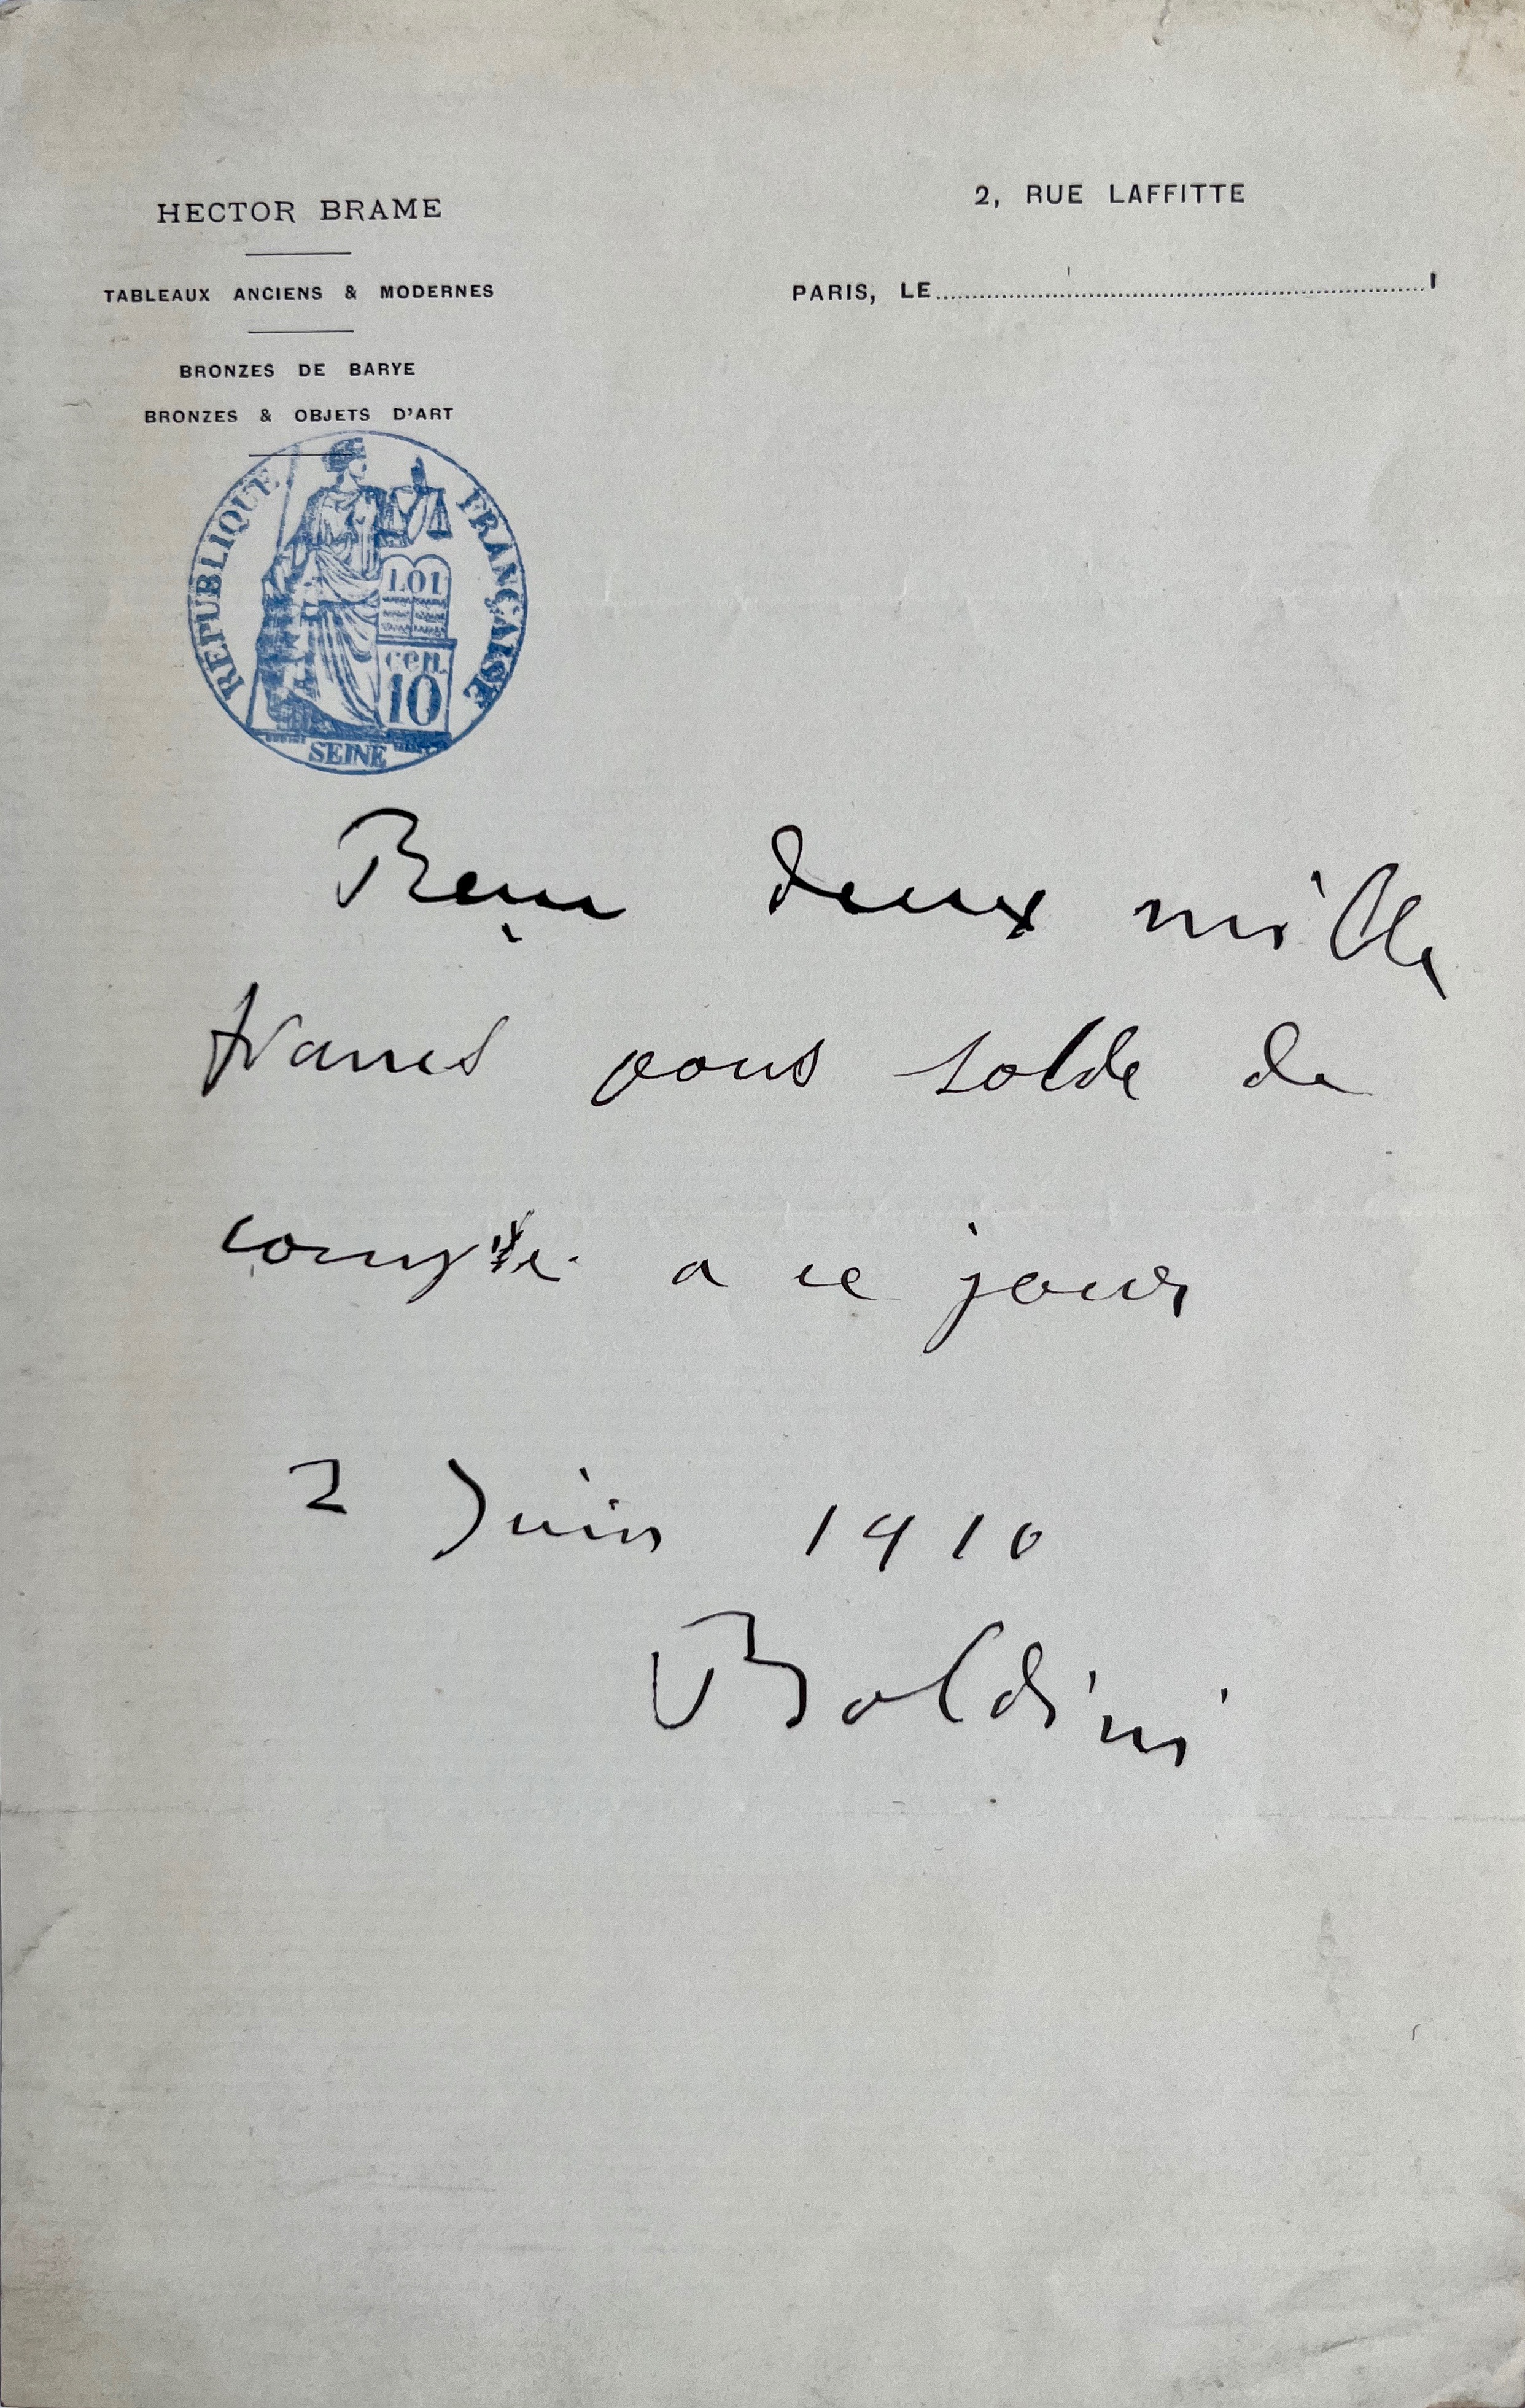 HECTOR BRAME
TABLEAUX ANCIENS & MODERNES
BRONZES DE BARYE
BRONZES & OBJETS D'ART
2, RUE LAFFITTE
PARIS, LE........................1
RÉPUBLIQUE FRANÇAISE
LOI
CEN.
10
SEINE
Reçu deux mille
francs pour solde de
compte a ce jour
2 Juin 1910
Boldini